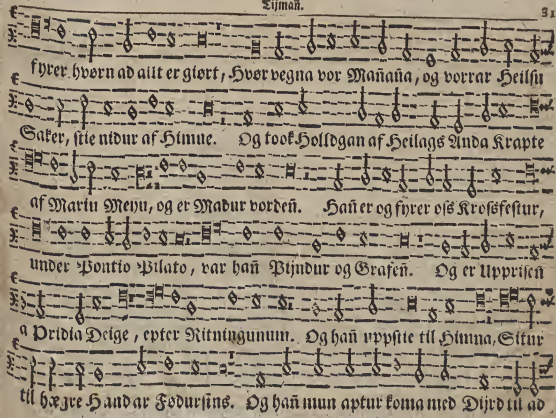 Tijman̄.
fyrer hvørn ad allt er giørt, Hvør vegna vor Man̄an̄a, og vorrar Heilsu
Saker, stie nidur af Himne. Og took Holldgan af Heilags Anda Krapte
af Mariu Meyu, og er Madur vorden̄. Han̄ er og fyrer oss Krossfestur,
under Pontio Pilato, var han̄ Pijndur og Grafen̄. Og er Upprisen̄
a Þridia Deige, epter Ritningunum. Og han̄ uppstie til Himna, Situr
til hægre Handar Fødursins. Og han̄ mun aptur koma med Dijrd til ad